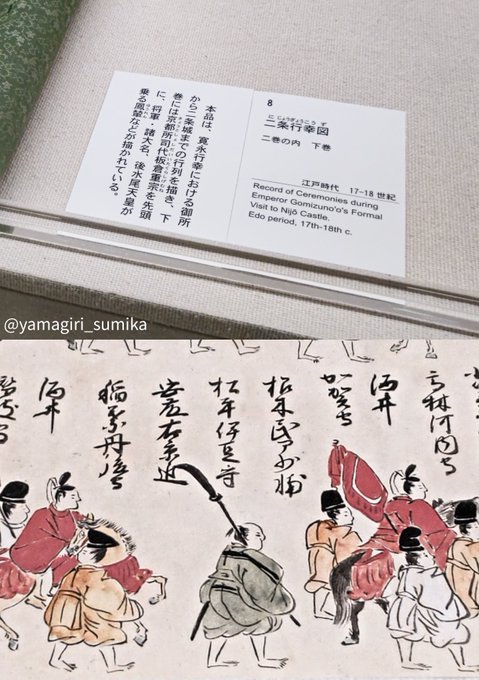 8
にじょうぎょうこうず
二条行幸図
二巻の内　下巻
江戸時代　17-18世紀
Record of Ceremonies during
Emperor Gomizuno'o's Formal
Visit to Nijō Castle.
Edo period, 17th-18th c.
本品は、寛永行幸における御所
から二条城までの行列を描き、下
巻には京都所司代板倉重宗を先頭
に、将軍・諸大名、後水尾天皇が
乗る鳳輦などが描かれている。
@yamagiri_sumika
酒井
松平伊豆守
安藤右京進
稲葉丹後守
酒井